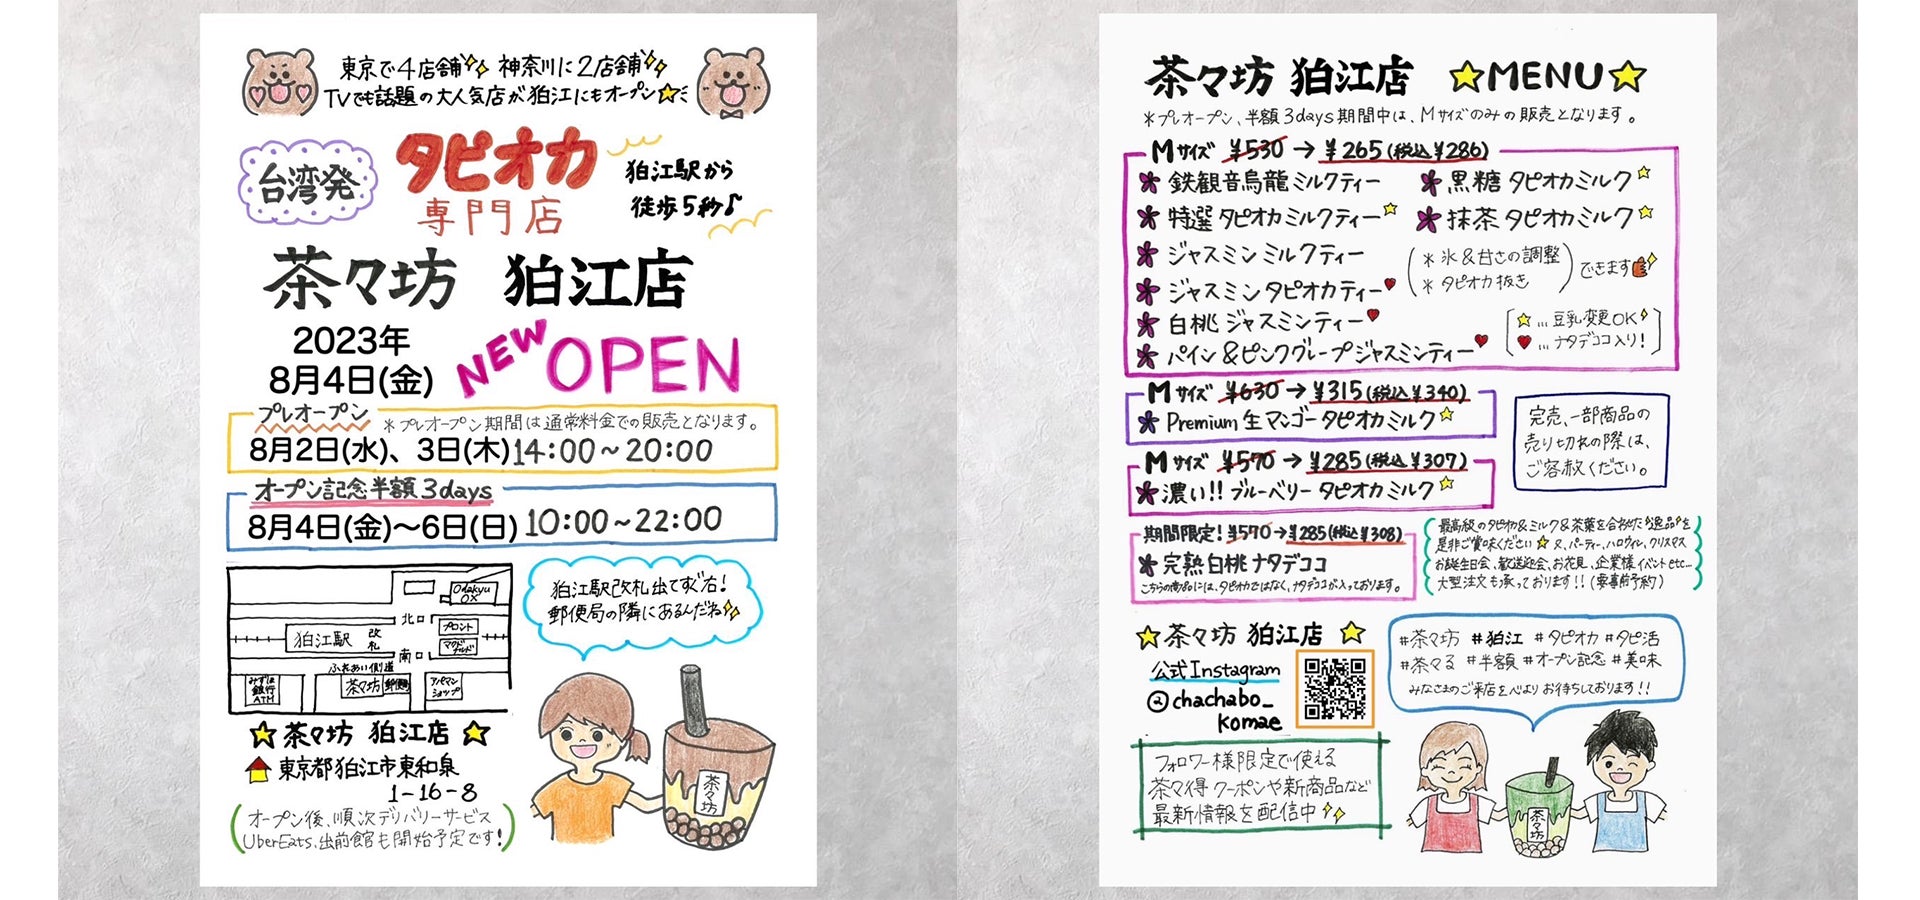 東京で4店舗 神奈川に2店舗
TVでも話題の大人気店が狛江にもオープン
台湾発
タピオカ
専門店
狛江駅から
徒歩5秒♪
茶々坊 狛江店
2023年
8月4日(金)
NEW OPEN
プレオープン
＊プレオープン期間は通常料金での販売となります。
8月2日(水)、3日(木)14:00～20:00
オープン記念半額3days
8月4日(金)～6日(日)10:00～22:00
Odakyu
OX
北口
狛江駅
改札
プロント
マクドナルド
南口
ふれあい側道
みずほ
銀行
ATM
茶々坊
郵便局
アパマン
ショップ
狛江駅改札出てすぐ右!
郵便局の隣にあるんだね
茶々坊 狛江店
東京都狛江市東和泉
1-16-8
オープン後、順次デリバリーサービス
UberEats、出前館も開始予定です!
茶々坊
茶々坊 狛江店 ☆MENU☆
＊プレオープン、半額3days期間中は、Mサイズのみの販売となります。
Mサイズ ¥530→¥265(税込¥286)
鉄観音烏龍ミルクティー
特選タピオカミルクティー☆
ジャスミンミルクティー
ジャスミンタピオカティー♥
白桃ジャスミンティー♥
パイン&ピンクグレープジャスミンティー♥
黒糖タピオカミルク☆
抹茶タピオカミルク☆
＊氷&甘さの調整
＊タピオカ抜き
できます
☆…豆乳変更OK
♥…ナタデココ入り!
Mサイズ ¥630→¥315(税込¥340)
Premium生マンゴータピオカミルク☆
Mサイズ ¥570→¥285(税込¥307)
濃い!!ブルーベリータピオカミルク☆
完売、一部商品の
売り切れの際は、
ご容赦ください。
期間限定!¥570→¥285(税込¥308)
完熟白桃ナタデココ
こちらの商品には、タピオカではなく、ナタデココが入っております。
最高級のタピオカ&ミルク&茶葉を合わせた逸品を
是非ご賞味ください☆又、パーティー、ハロウィン、クリスマス
お誕生日会、歓送迎会、お花見、企業様イベントetc…
大型注文も承っております!!(要事前予約)
☆茶々坊 狛江店☆
公式Instagram
@chachabo_
komae
#茶々坊 #狛江 #タピオカ #タピ活
#茶々る #半額 #オープン記念 #美味
みなさまのご来店を心よりお待ちしております!!
フォロワー様限定で使える
茶々得クーポンや新商品など
最新情報を配信中
茶々坊